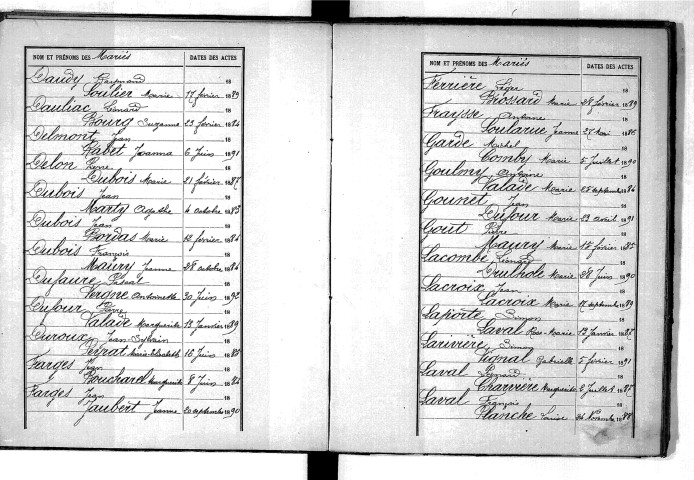 NOM ET PRÉNOMS DES Mariés DATES DES ACTES
Daudy Raymond 18
Soulier Marie 17 février 1889
Dauliac Léonard 18
Bourg Suzanne 23 février 1884
Delmont Jean 18
Gabet Joanna 6 Juin 1891
Delon Pierre 18
Dubois Marie 21 février 1887
Dubois Jean 18
Marty Agathe 4 octobre 1883
Dubois Jean 18
Bordas Marie 12 février 1884
Dubois François 18
Maury Jeanne 28 octobre 1884
Dufaure Pascal 18
Vergne Antoinette 30 Juin 1892
Dufour Pierre 18
Valade Marguerite 13 Janvier 1889
Duroux Jean-Sylvain 18
Serrat Marie-Elisabeth 16 Juin 1885
Farges Jean 18
Bouchard Marguerite 8 Juin 1882
Farges Jean 18
Jaubert Jeanne 20 septembre 1890
NOM ET PRÉNOMS DES Mariés DATES DES ACTES
Ferrière 18
Brossard Marie 28 février 1889
Fraysse Antoine 18
Soularue Jeanne 27 Mai 1886
Garde Michel 18
Comby Marie 5 Juillet 1890
Goulmy Antoine 18
Valade Marie 25 septembre 1884
Gounet Jean 18
Dufour Marie 23 avril 1891
Gout Pierre 18
Maury Marie 17 février 1885
Lacombe Léonard 18
Marie 28 Juin 1890
Lacroix Jean 18
Lacroix Marie 17 septembre 1889
Laporte Simon 18
Laval Rose-Marie 12 Janvier 1887
Larivière Simon 18
Vignal Gabrielle 5 février 1891
Laval Léonard 18
Charrière Marguerite 2 Juillet 1887
Laval François 18
Planche Louise 24 Novembre 1888